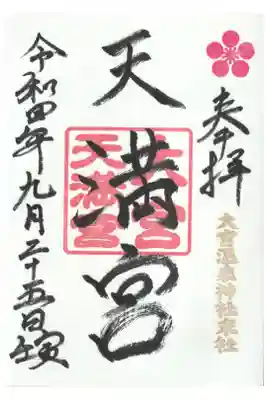 奉拝
大宮温泉神社末社
天満宮
令和四年九月二十五日壬寅